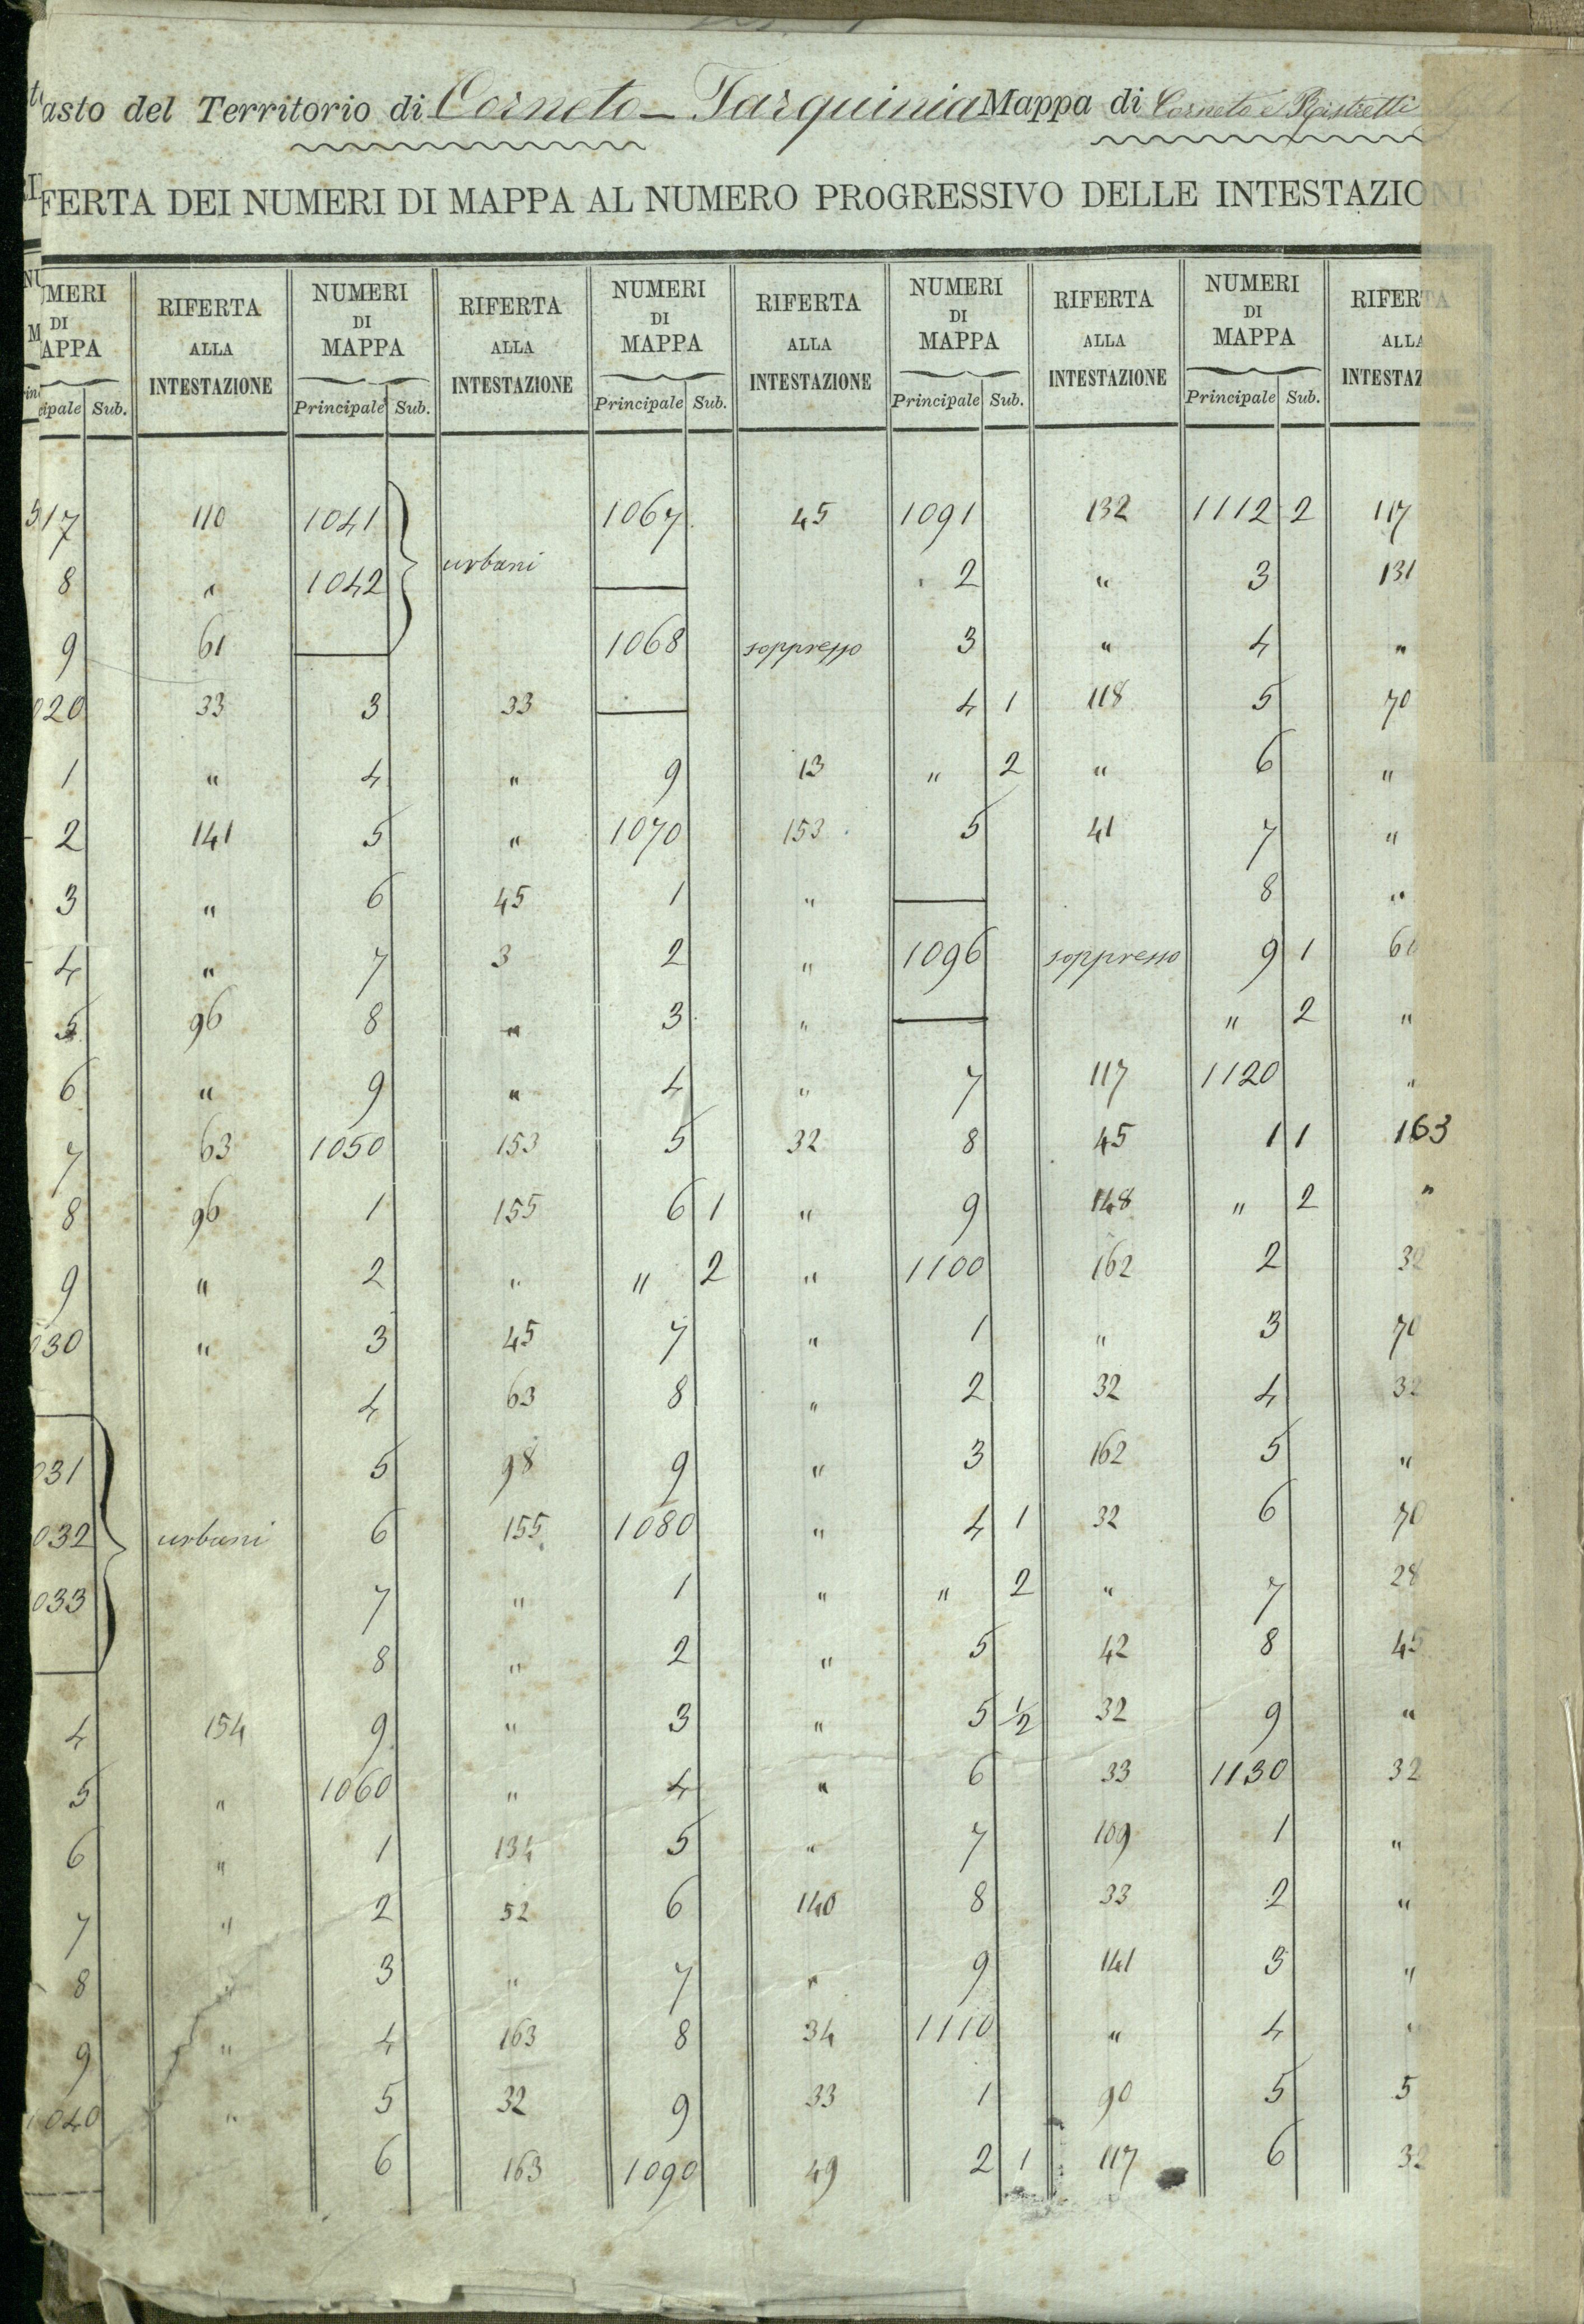 asto del Territorio di Corneto - Tarquinia Mappa di Corneto e Ristretti
FERTA DEI NUMERI DI MAPPA AL NUMERO PROGRESSIVO DELLE INTESTAZIONI
MERI RIFERTA NUMERI RIFERTA NUMERI RIFERTA NUMERI RIFERTA NUMERI RIFERTA
DI ALLA DI ALLA DI ALLA DI ALLA DI ALLA
APPA INTESTAZIONE MAPPA INTESTAZIONE MAPPA INTESTAZIONE MAPPA INTESTAZIONE MAPPA INTESTAZ
cipale Sub. Principale Sub. Principale Sub. Principale Sub. Principale Sub.
17 110 1041 urbani 1067 45 1091 132 1112 2 117
8 " 1042 2 " 3 131
9 61 1068 soppresso 3 " 4 "
020 33 3 33 4 1 118 5 70
1 " 4 " 9 13 " 2 " 6 "
2 141 5 " 1070 153 5 41 7 "
3 " 6 45 1 " 8 "
4 " 7 3 2 " 1096 soppresso 9 1
5 96 8 " 3 " " 2 "
6 " 9 " 4 " 7 117 1120 "
7 63 1050 153 5 32 8 45 1 1 163
8 96 1 155 6 1 " 9 148 " 2 "
9 " 2 " " 2 " 1100 162 2 32
030 " 3 45 7 " 1 " 3 70
4 63 8 " 2 32 4 32
031 5 98 9 " 3 162 5 "
032 urbani 6 155 1080 " 4 1 32 6 70
033 7 " 1 " " 2 " 7 28
8 " 2 " 5 42 8 45
4 154 9 " 3 " 5 1/2 32 9 "
5 " 1060 " 4 " 6 33 1130 32
6 " 1 134 5 " 7 109 1 "
7 " 2 52 6 140 8 33 2 "
8 " 3 " 7 " 9 141 3 "
9 " 4 163 8 34 1110 " 4 "
040 " 5 32 9 33 1 90 5 5
6 163 1090 49 2 1 117 6 32